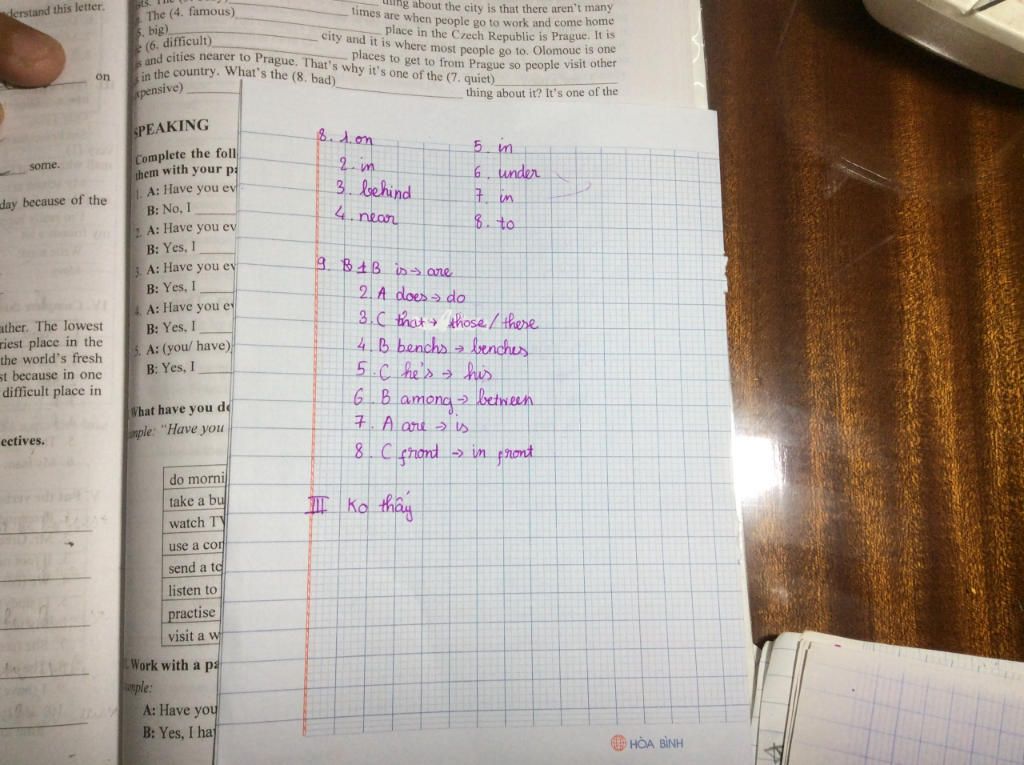 derstand this letter.
on
some.
day because of the
ather. The lowest
riest place in the
the world's fresh
st because in one
difficult place in
ectives.
thing about the city is that there aren't many
The (4. famous) times are when people go to work and come home
5. big) place in the Czech Republic is Prague. It is
(6. difficult) city and it is where most people go to. Olomouc is one
and cities nearer to Prague. That's why it's one of the (7. quiet) places to get to from Prague so people visit other
in the country. What's the (8. bad)
xpensive) thing about it? It's one of the
SPEAKING
Complete the foll
them with your pa
1. A: Have you ev
B: No, I
2. A: Have you ev
B: Yes, I
3. A: Have you ev
B: Yes, I
4. A: Have you ev
B: Yes, I
5. A: (you/ have)
B: Yes, I
What have you do
mple: "Have you
do morni
take a bu
watch TV
use a cor
send a te
listen to
practise
visit a w
Work with a pa
mple:
A: Have you
B: Yes, I ha
8. 1. on
2. in
3. behind
4. near
5. in
6. under
7. in
8. to
9. B 1 B is → are
2. A does → do
3. C that → those / these
4. B benchs → benches
5. C he's → his
6. B among → between
7. A are → is
8. C front → in front
III Ko thấy
HÒA BÌNH